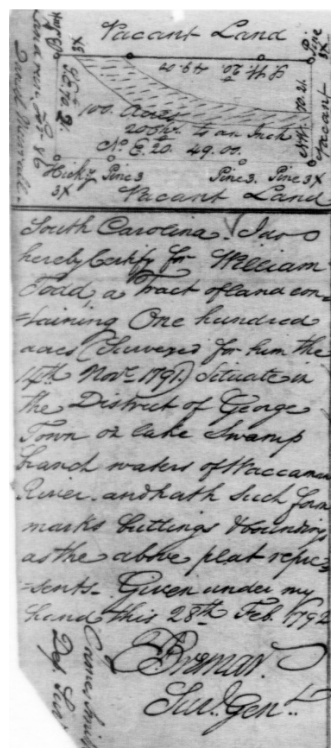 Vacant Land
3X
Pine
49.00
100. Acres
to an Inch
N. E. 20. 49.00.
Hicky Pine 3 Pine 3. Pine 3X
3X
Vacant Land
South Carolina. I do
hereby Certify for William
Todd, a Tract of land con
=taining One hundred
acres (Surveyed for him the
14th Novr. 1791) Situate in
the District of George
Town on lake Swamp
waters of Waccamaw
River. and hath such form
marks buttings & bounding
as the above plat repre=
=sents. Given under my
hand this 28th. Feb. 1792
Bremar.
Surv. Genl.
Dep. Sur.